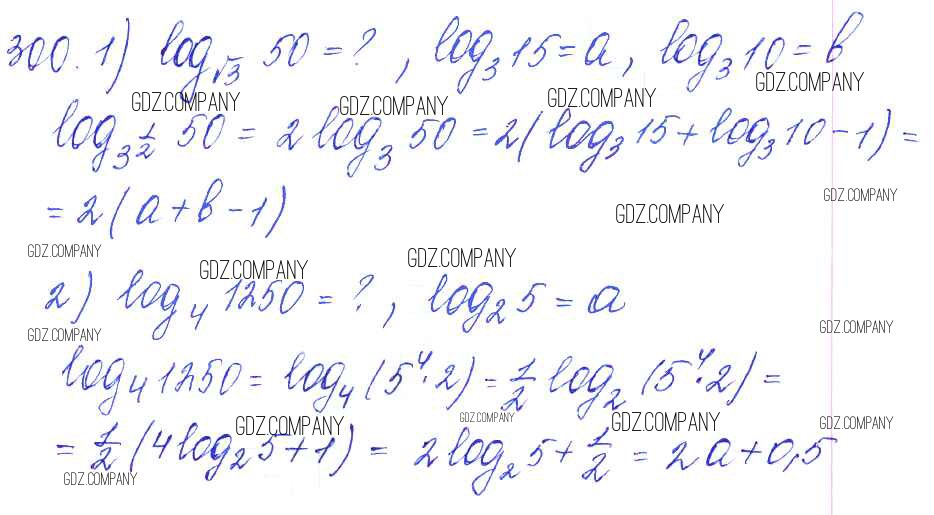 300. 1) log_√3 50 = ? , log_3 15 = a, log_3 10 = b
GDZ.COMPANY GDZ.COMPANY GDZ.COMPANY GDZ.COMPANY
log_3^{1/2} 50 = 2 log_3 50 = 2(log_3 15 + log_3 10 - 1) =
GDZ.COMPANY
= 2(a + b - 1) GDZ.COMPANY
GDZ.COMPANY GDZ.COMPANY GDZ.COMPANY
2) log_4 1250 = ? , log_2 5 = a
GDZ.COMPANY GDZ.COMPANY
log_4 1250 = log_4 (5^4 · 2) = 1/2 log_2 (5^4 · 2) =
GDZ.COMPANY GDZ.COMPANY GDZ.COMPANY GDZ.COMPANY
= 1/2 (4 log_2 5 + 1) = 2 log_2 5 + 1/2 = 2a + 0,5
GDZ.COMPANY